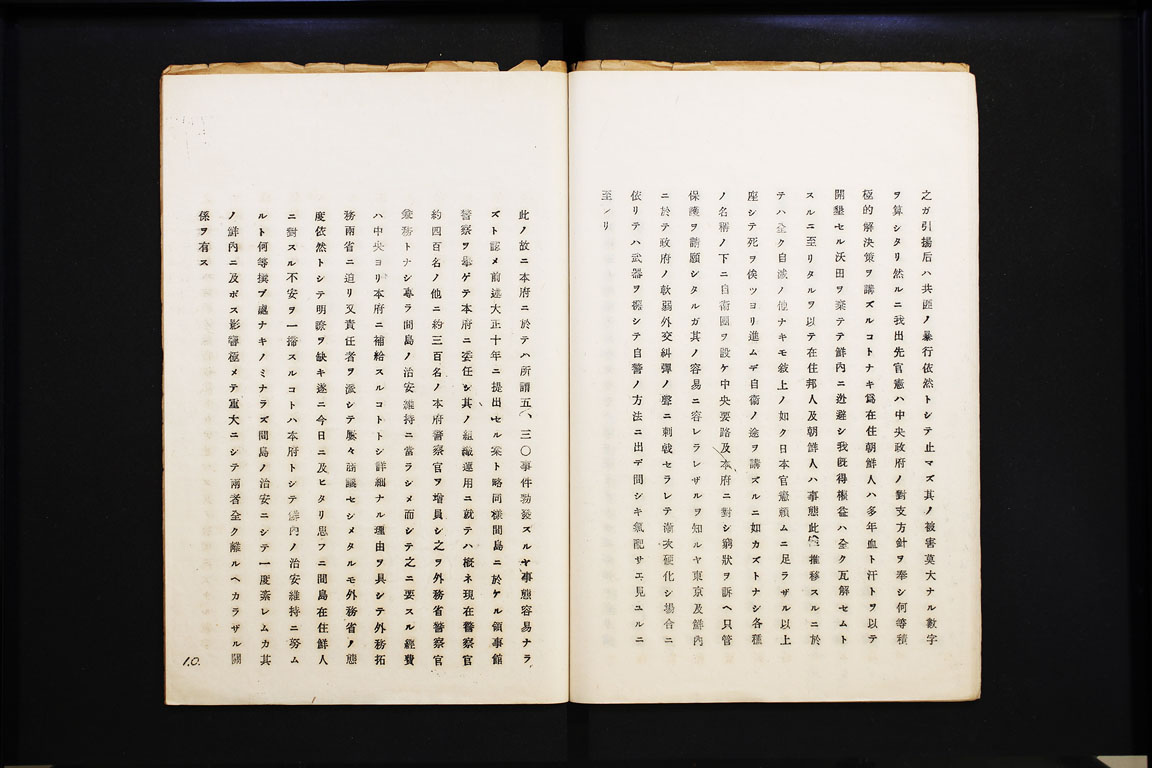 之ガ引揚后ハ共匪ノ暴行依然トシテ止マズ其ノ被害莫大ナル數字
ヲ算シタリ然ルニ我出先官憲ハ中央政府ノ對支方針ヲ奉シ何等積
極的解決策ヲ講ズルコトナキ爲在住朝鮮人ハ多年血ト汗トヲ以テ
開墾セル沃田ヲ棄テテ鮮內ニ逃避シ我既得權益ハ全ク瓦解セムト
スルニ至リタルヲ以テ在住邦人及朝鮮人ハ事態此儘推移スルニ於
テハ全ク自滅ノ他ナキモ敍上ノ如ク日本官憲賴ムニ足ラザル以上
座シテ死ヲ俟ツヨリ進ムデ自衞ノ途ヲ講ズルニ如カズトナシ各種
ノ名稱ノ下ニ自衞團ヲ設ケ中央要路及本府ニ對シ窮狀ヲ訴ヘ只管
保護ヲ請願シタルガ其ノ容易ニ容レラレザルヲ知ルヤ東京及鮮內
ニ於テ政府ノ軟弱外交糾彈ノ聲ニ刺戟セラレテ漸次硬化シ場合ニ
依リテハ武器ヲ探シテ自警ノ方法ニ出デ間シキ氣配サエ見ユルニ
至レリ
此ノ故ニ本府ニ於テハ所謂五、三〇事件勃發スルヤ事態容易ナラ
ズト認メ前述大正十年ニ提出セル案ト略同樣間島ニ於ケル領事館
警察ヲ擧ゲテ本府ニ委任シ其ノ組織運用ニ就テハ槪ネ現在警察官
約四百名ノ他ニ約三百名ノ本府警察官ヲ增員シ之ヲ外務省警察官
兼務トナシ專ラ間島ノ治安維持ニ當ラシメ而シテ之ニ要スル經費
ハ中央ヨリ本府ニ補給スルコトトシ詳細ナル理由ヲ具シテ外務拓
務兩省ニ迫リ又責任者ヲ派シテ屢々商議セシメタルモ外務省ノ態
度依然トシテ明瞭ヲ缺キ遂ニ今日ニ及ビタリ思フニ間島在住鮮人
ニ對スル不安ヲ一掃スルコトハ本府トシテ鮮內ノ治安維持ニ努ム
ルト何等撰ブ處ナキノミナラズ間島ノ治安ニシテ一度紊レムカ其
ノ鮮內ニ及ボス影響極メテ重大ニシテ兩者全ク離ルヘカラザル關
係ヲ有ス
10.